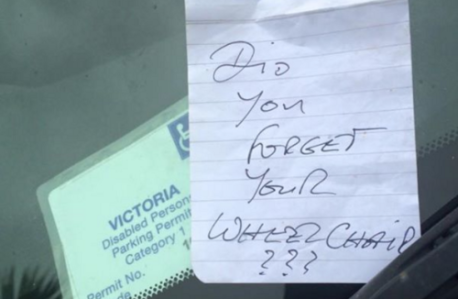 DID
YOU
FORGET
YOUR
WHEELCHAIR
???
VICTORIA
Disabled Person
Parking Permi
Category 1
Permit No.